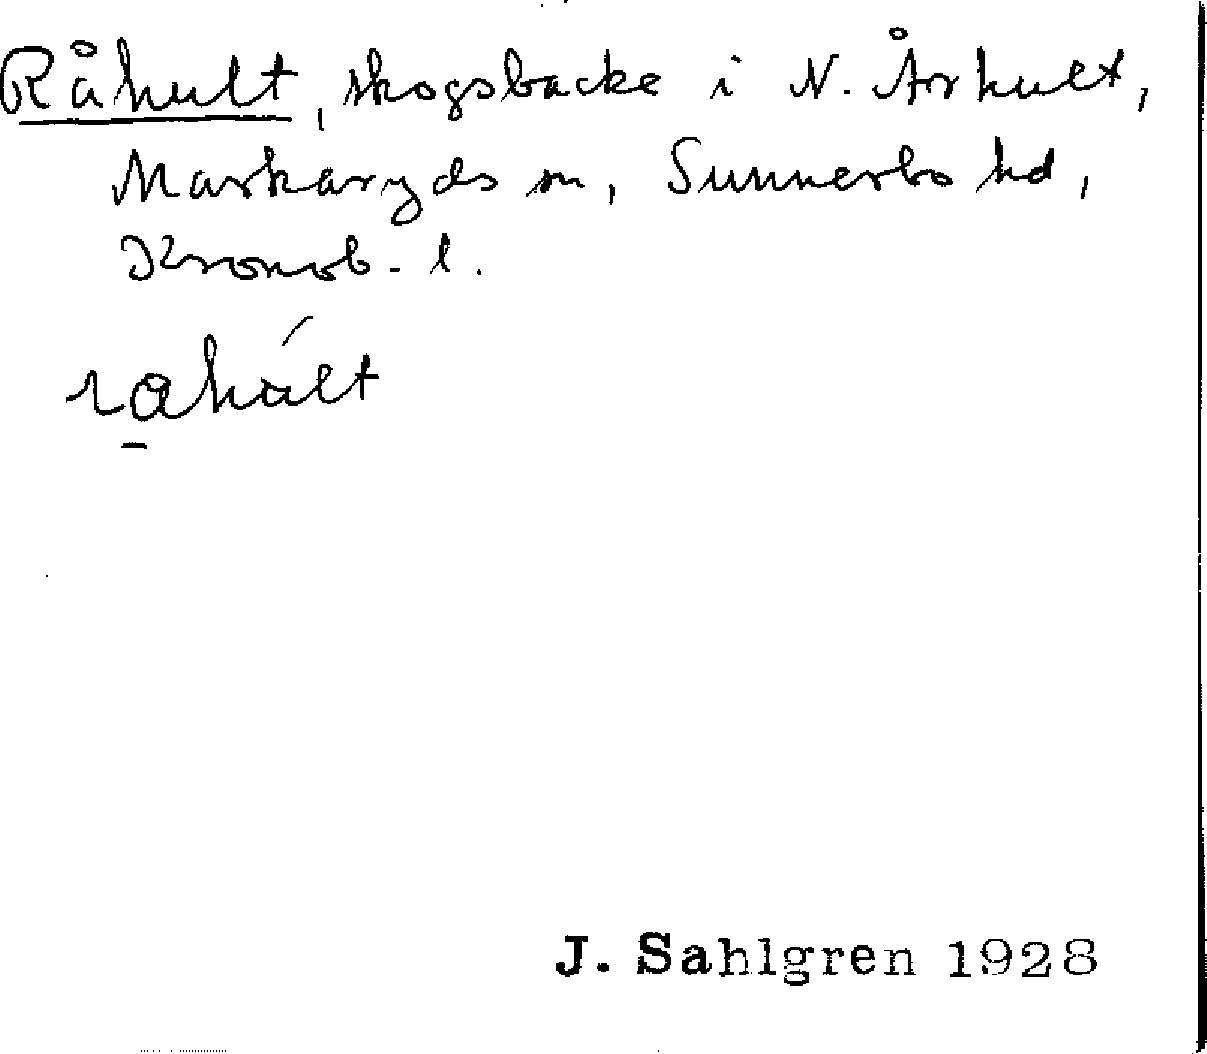 Råhult, skogsbacke i N. Århult,
Markaryds sn, Sunnerbo hd,
Kronob. l.
J. Sahlgren 1928